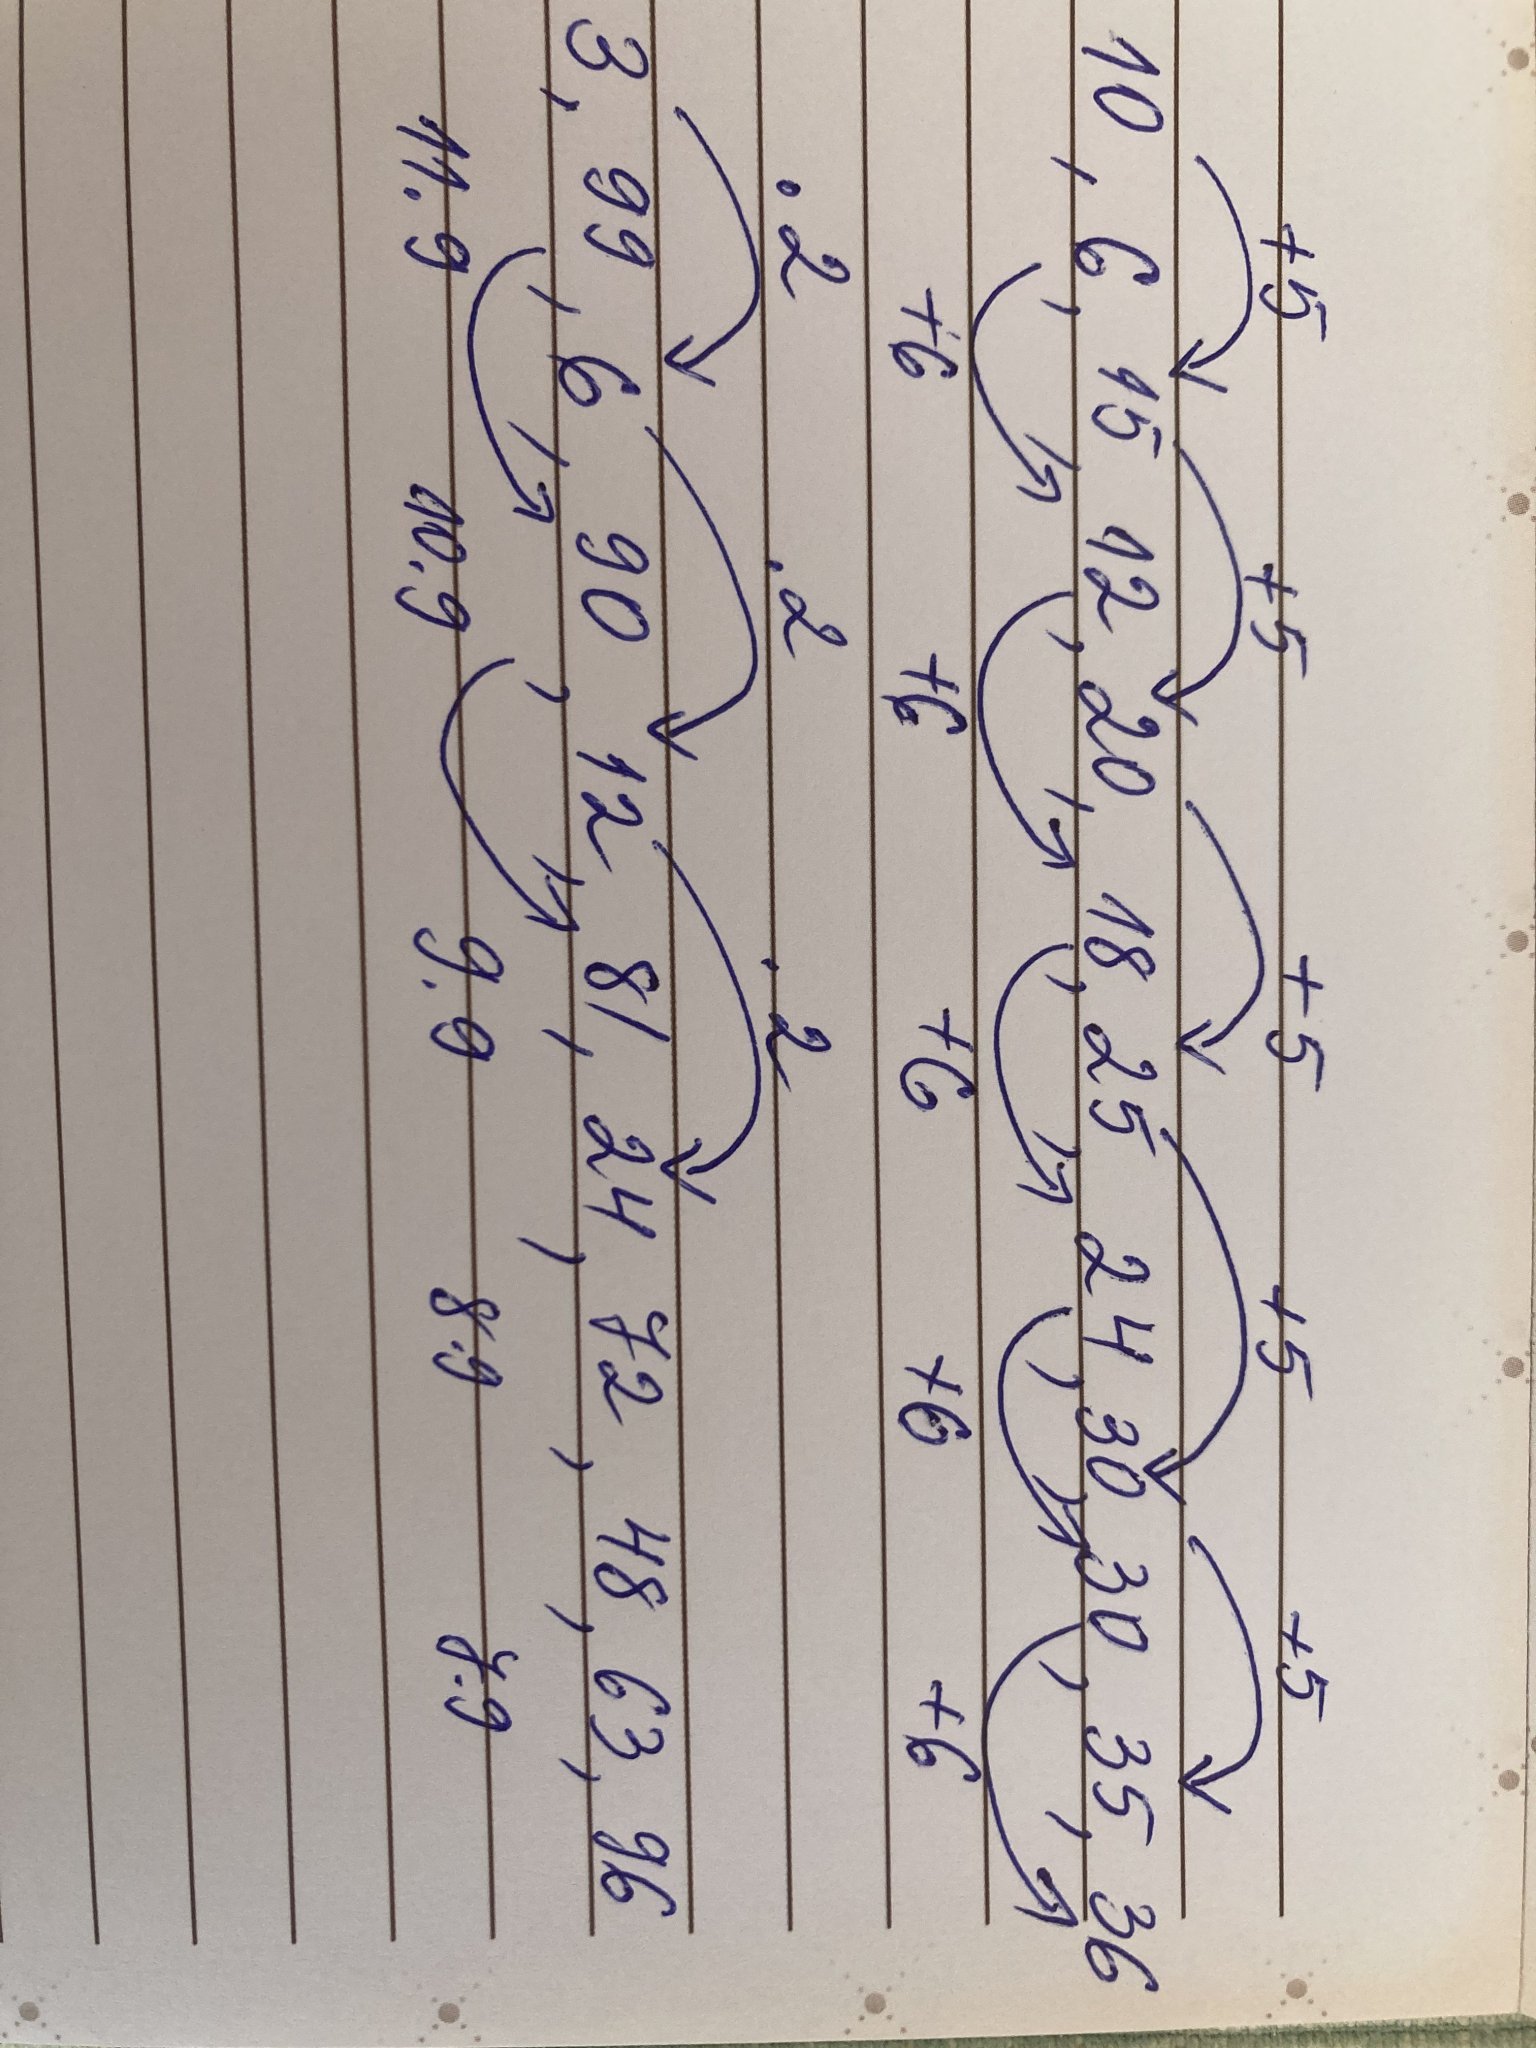 +5 +5 +5 +5 +5
10, 6, 15, 12, 20, 18, 25, 24, 30, 30, 35, 36
+6 +6 +6 +6 +6
.2 .2 .2
3, 99, 6, 90, 12, 81, 24, 72, 48, 63, 96
11.9 10.9 9.9 8.9 7.9